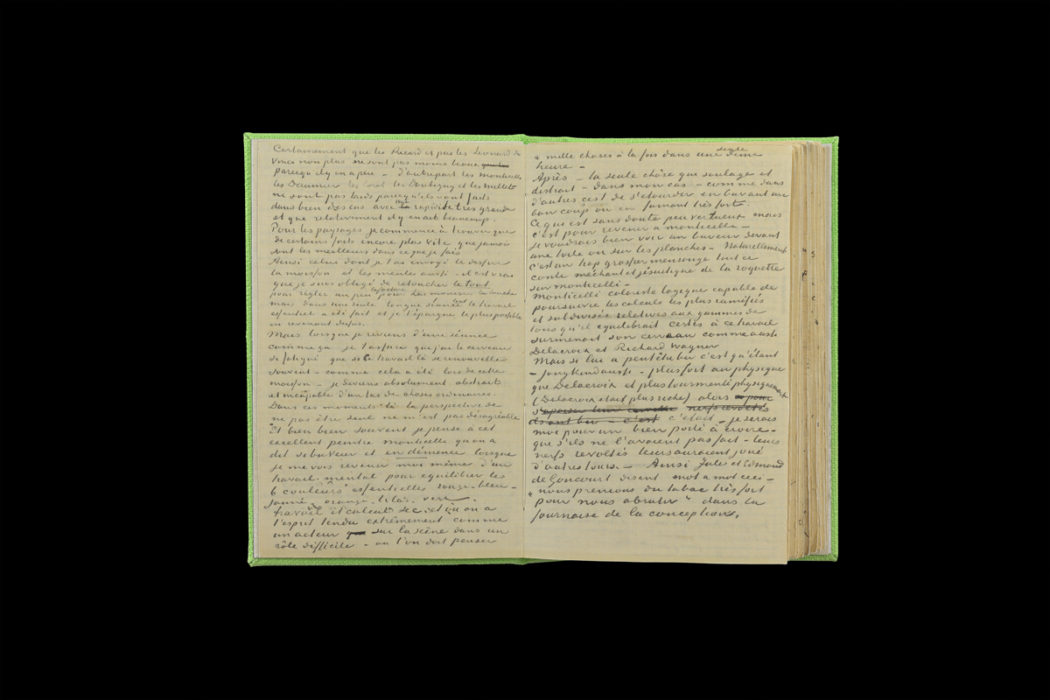 Certainement que les Ricard et pas les Leonard de
Vinci non plus ne sont pas moins beaux que les
parcequ'il y en a peu – d'autrepart les monticelli
les Daumier les Corot les Daubigny et les Millet
ne sont pas laids parcequ'ils sont faits
dans bien des cas avec une la rapidité très grande
et que relativement il y en ait beaucoup.
Pour les paysages je commence à trouver que
de certains faits encore plus vite que jamais
sont les meilleurs dans ce que je fais.
Ainsi celui dont je t'ai envoyé le dessin
la moisson et les meules aussi – il est vrai
que je suis obligé de retoucher le tout
pour régler un peu la facture pour
mais dans une seule longue séance tout le travail
essentiel a été fait et je l'épargne le plus possible
en revenant dessus.
Mais lorsque je reviens d'une séance
comme ça je t'assure que j'ai le cerveau
si fatigué que si ce travail là se renouvelle
souvent – comme cela a été lors de cette
moisson – je deviens absolument abstrait
et incapable d'un tas de choses ordinaires.
Dans ces moments là la perspective de
ne pas être seul ne m'est pas désagréable
Et bien bien souvent je pense à cet
excellent peintre monticelli qu'on a
dit si buveur et en démence lorsque
je me vois revenir moi même d'un
travail mental pour équilibrer les
6 couleurs essentielles rouge – bleu –
jaune – orangé – lilas – vert.
travail et calcul sec et où on a
l'esprit tendu extrêmement comme
un acteur sur la scène dans un
rôle difficile – ou l'on doit penser
à mille choses à la fois dans une seule demi
heure –
Après – la seule chose que soulage et
distrait – dans mon cas – comme dans
d'autres c'est de s'etourdir en buvant un
bon coup ou en fumant très fort.
Ce qui est sans doute peu vertueux mais
c'est pour revenir a monticelli –
je voudrais bien voir un buveur devant
une toile ou sur les planches – Naturellement
c'est un trop grossier mensonge tout ce
conte méchant et jésuitique de la roquette
sur monticelli –
Monticelli coloriste logique capable de
poursuivre les calculs les plus ramifiés
et subdivisés relatives aux gammes de
tons qu'il equilibrait certes à ce travail
surmenait son cerveau comme aussi
Delacroix et Richard Wagner
Mais si lui a peutêtre bu c'est qu'étant
– Jongkind aussi – plus fort au physique
que Delacroix et plus tourmenté physiquement
(Delacroix était plus riche) alors
s'apaiser leur nerfs revoltés
ils ont bu – c'est c'etait – je serais
moi pour un bien porté à croire –
que s'ils ne l'avaient pas fait – leurs
nerfs revoltés leurs auraient joué
d'autres tours. – Ainsi Jules et Edmond
de Goncourt disent mot à mot ceci –
"nous prenions du tabac très fort
pour nous abrutir" dans la
fournaise de la conception.